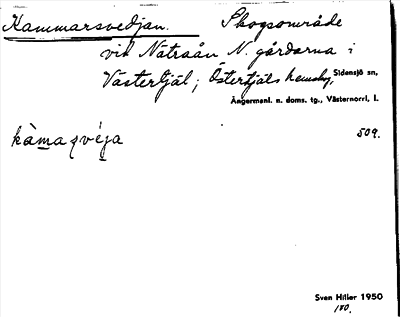 Kammarsvedjan. Skogsområde
vid Nätraån N. gårdarna i
Västertjäl; Östertjäls hemsby, Sidensjö sn,
Ångermanl. n. doms. tg., Västernorrl. l.
509.
kàmasvéja
Sven Hiller 1950
180.